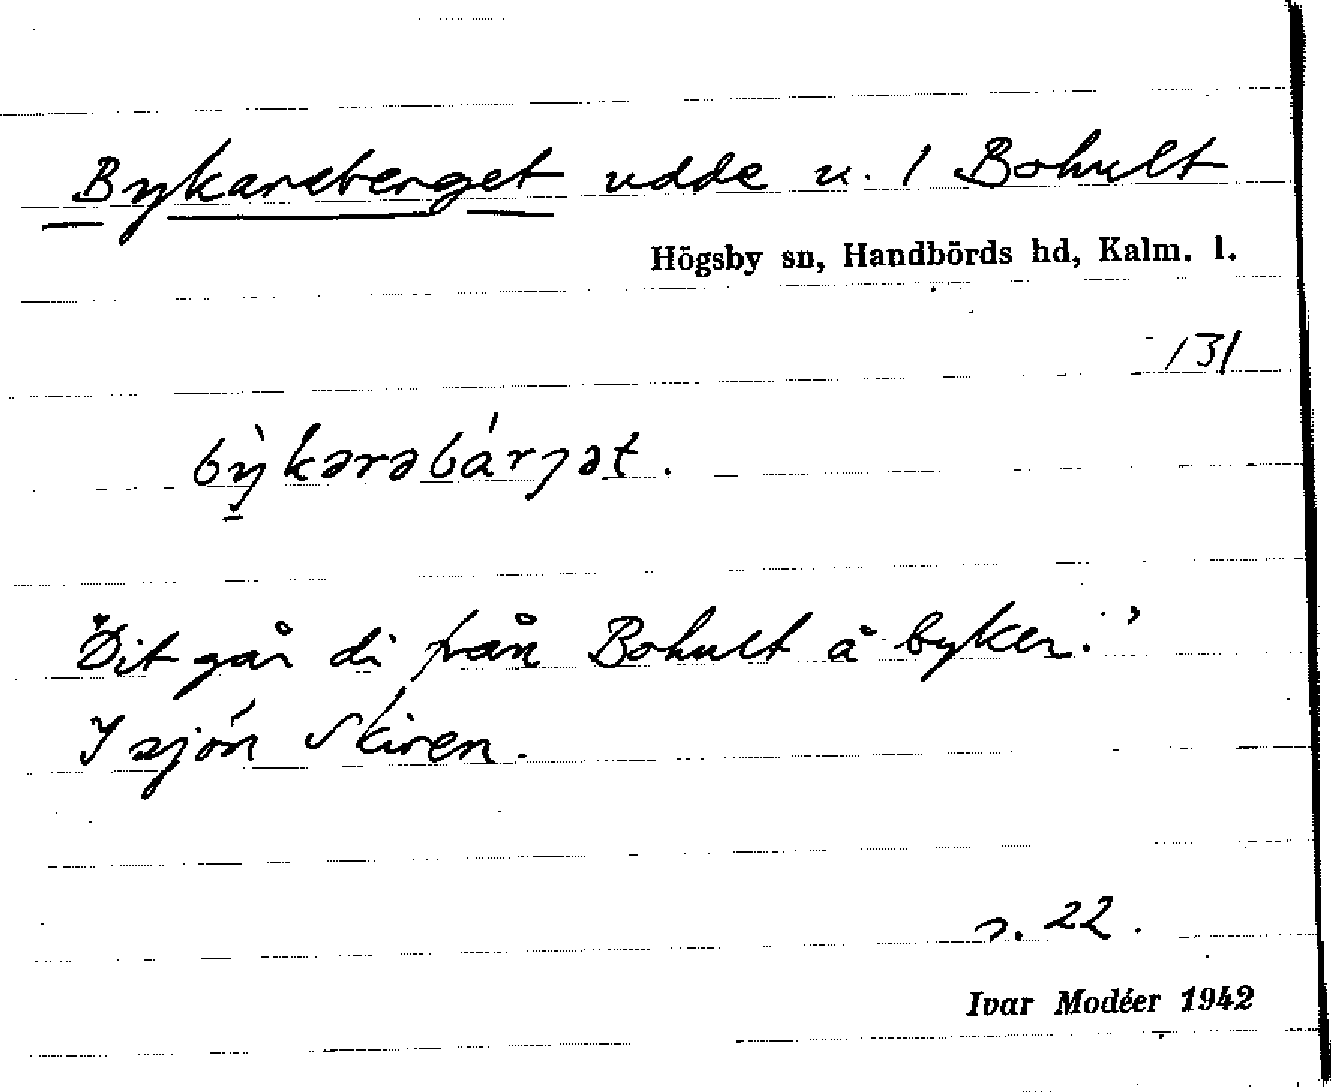 Bykareberget udde u. 1 Bohult
Högsby sn, Handbörds hd, Kalm. l.
131
bỳkərəbárjət.
"Dit går di från Bohult å byker."
I sjön Skiren.
s. 22.
Ivar Modéer 1942